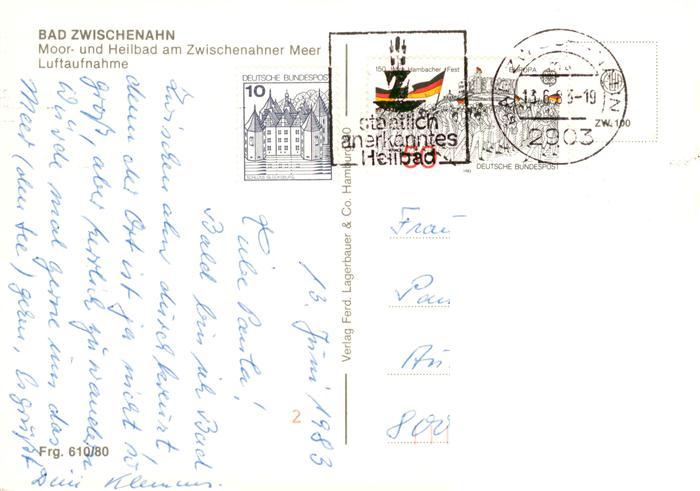 BAD ZWISCHENAHN
Moor- und Heilbad am Zwischenahner Meer
Luftaufnahme
DEUTSCHE BUNDESPOST
10
SCHLOSS GLÜCKSBURG
150 Jahre Hambacher Fest
EUROPA
DEUTSCHE BUNDESPOST
Z
staatlich
anerkanntes
Heilbad
13.6.83-19
2903
ZW. 100
13. Juni 1983
Liebe Paula!
Bald bin ich Bad
Zwischenahn durchkreuzt
denn der Ort ist ja nicht so
groß, aber herrlich zu wandern
Würde mal gerne um das
Meer (den See) gern, Es grüßt
Deine Klemens.
Verlag Ferd. Lagerbauer & Co. Hamburg
Frau
800
2
Frg. 610/80